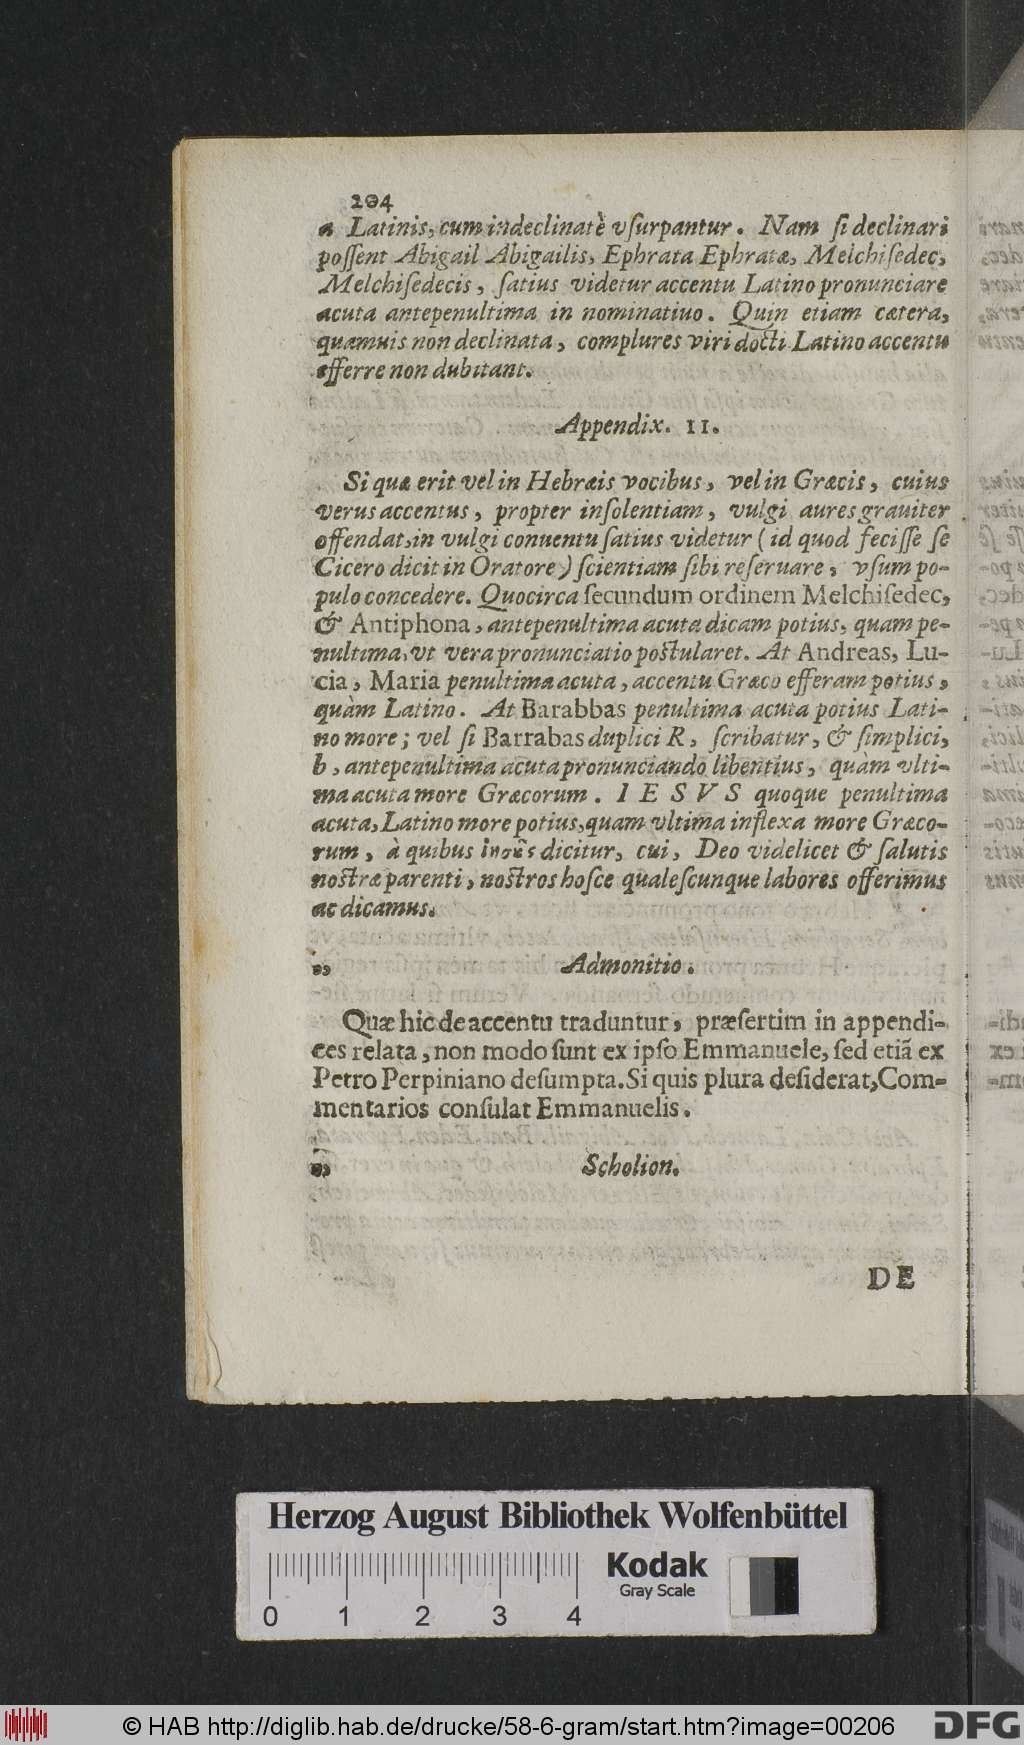 204
a Latinis, cum indeclinatè vſurpantur. Nam ſi declinari
poſſent Abigail Abigailis, Ephrata Ephratæ, Melchiſedec,
Melchiſedecis, ſatius videtur accentu Latino pronunciare
acuta antepenultima in nominatiuo. Quin etiam cætera,
quamuis non declinata, complures viri docti Latino accentu
efferre non dubitant.
Appendix. II.
Si quæ erit vel in Hebræis vocibus, vel in Græcis, cuius
verus accentus, propter inſolentiam, vulgi aures grauiter
offendat, in vulgi conuentu ſatius videtur (id quod feciſſe ſe
Cicero dicit in Oratore) ſcientiam ſibi reſeruare, vſum po-
pulo concedere. Quocirca ſecundum ordinem Melchiſedec,
& Antiphona, antepenultima acuta dicam potius, quam pe-
nultima, vt vera pronunciatio poſtularet. At Andreas, Lu-
cia, Maria penultima acuta, accentu Græco efferam potius,
quàm Latino. At Barabbas penultima acuta potius Lati-
no more; vel ſi Barrabas duplici R, ſcribatur, & ſimplici,
b, antepenultima acuta pronunciando libentius, quàm vlti-
ma acuta more Græcorum. I E S V S quoque penultima
acuta, Latino more potius, quam vltima inflexa more Græco-
rum, à quibus ἰησοῦς dicitur, cui, Deo videlicet & ſalutis
noſtræ parenti, noſtros hoſce qualeſcunque labores offerimus
ac dicamus.
„ Admonitio.
Quæ hic de accentu traduntur, præſertim in appendi-
ces relata, non modo ſunt ex ipſo Emmanuele, ſed etiã ex
Petro Perpiniano deſumpta. Si quis plura deſiderat, Com-
mentarios conſulat Emmanuelis.
„ Scholion.
DE
Herzog August Bibliothek Wolfenbüttel
Kodak
Gray Scale
0 1 2 3 4
© HAB http://diglib.hab.de/drucke/58-6-gram/start.htm?image=00206
DFG